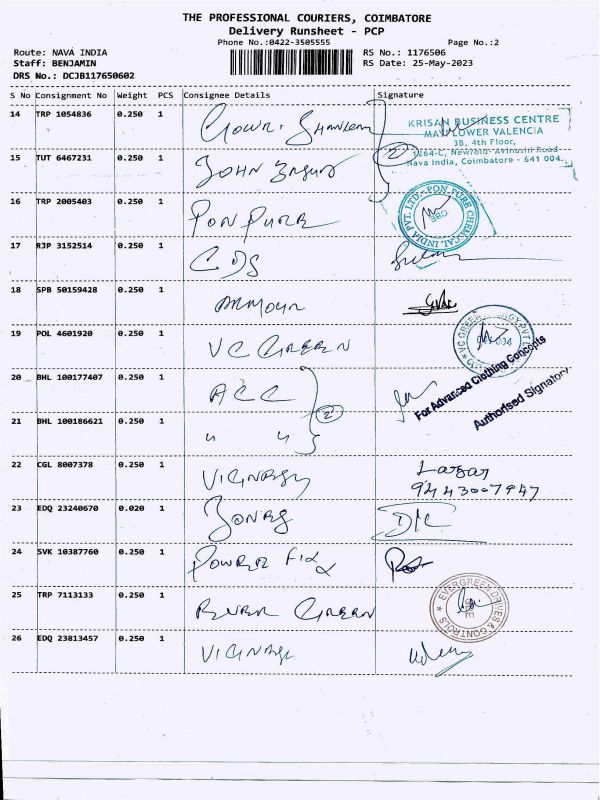 THE PROFESSIONAL COURIERS, COIMBATORE
Delivery Runsheet - PCP
Phone No.:0422-3505555
Page No.:2
Route: NAVA INDIA
RS No.: 1176506
Staff: BENJAMIN
RS Date: 25-May-2023
DRS No.: DCJB117650602
S No Consignment No Weight PCS Consignee Details Signature
14 TRP 1054836 0.250 1 Gowri Shankar
KRISAN BUSINESS CENTRE
MAYFLOWER VALENCIA
3B, 4th Floor,
1264-C, Newzold- Avinashi Road
Nava India, Coimbatore - 641 004.
15 TUT 6467231 0.250 1 JOHN 2
16 TRP 2005403 0.250 1 PON PURE
PON PURE CHEMICAL INDIA PVT. LTD.
CBE
17 RJP 3152514 0.250 1 CDS
18 SPB 50159428 0.250 1 ARMOUR
19 POL 4601920 0.250 1 VC GREEN
20 BHL 100177407 0.250 1 ACC 2
For Advanced Clothing Concepts
Authorised Signatory
21 BHL 100186621 0.250 1 " "
22 CGL 8007378 0.250 1
23 EDQ 23240670 0.020 1
24 SVK 10387760 0.250 1 POWER FIX
25 TRP 7113133 0.250 1 EVER GREEN
EVERGREEN DRIVES & CONTROLS
26 EDQ 23813457 0.250 1